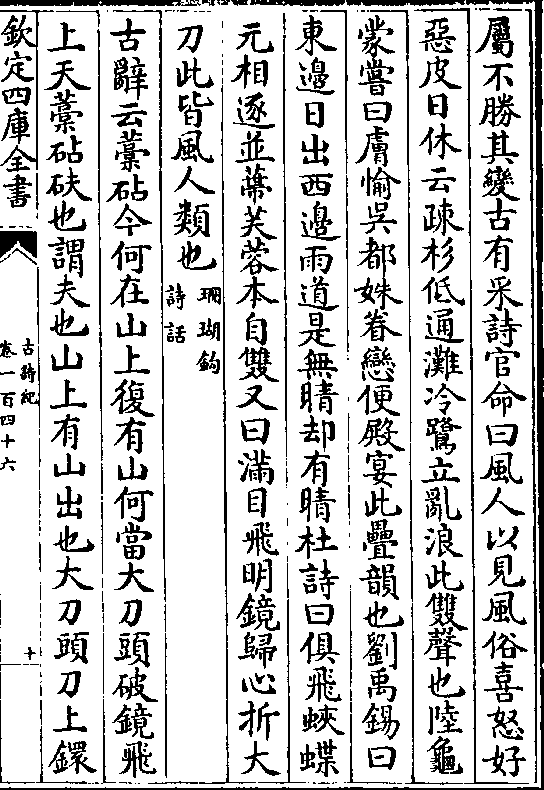 屬不勝其變古有采詩官命曰風人以見風俗喜怒好
惡皮日休云疎杉低通灘冷鷺立亂浪此雙聲也陸龜
蒙嘗曰膚愉吳都姝眷戀便殿宴此疊韻也劉禹錫曰
東邊日出西邊雨道是無晴却有晴杜詩曰俱飛蛺蝶
元相逐並蔕芙蓉本自雙又曰滿目飛明鏡歸心折大
刀此皆風人類也珊瑚鈎
詩話
古辭云藁砧今何在山上復有山何當大刀頭破鏡飛
上天藁砧砆也謂夫也山上有山出也大刀頭刀上鐶
欽定四庫全書
古詩紀
卷一百四十六
十